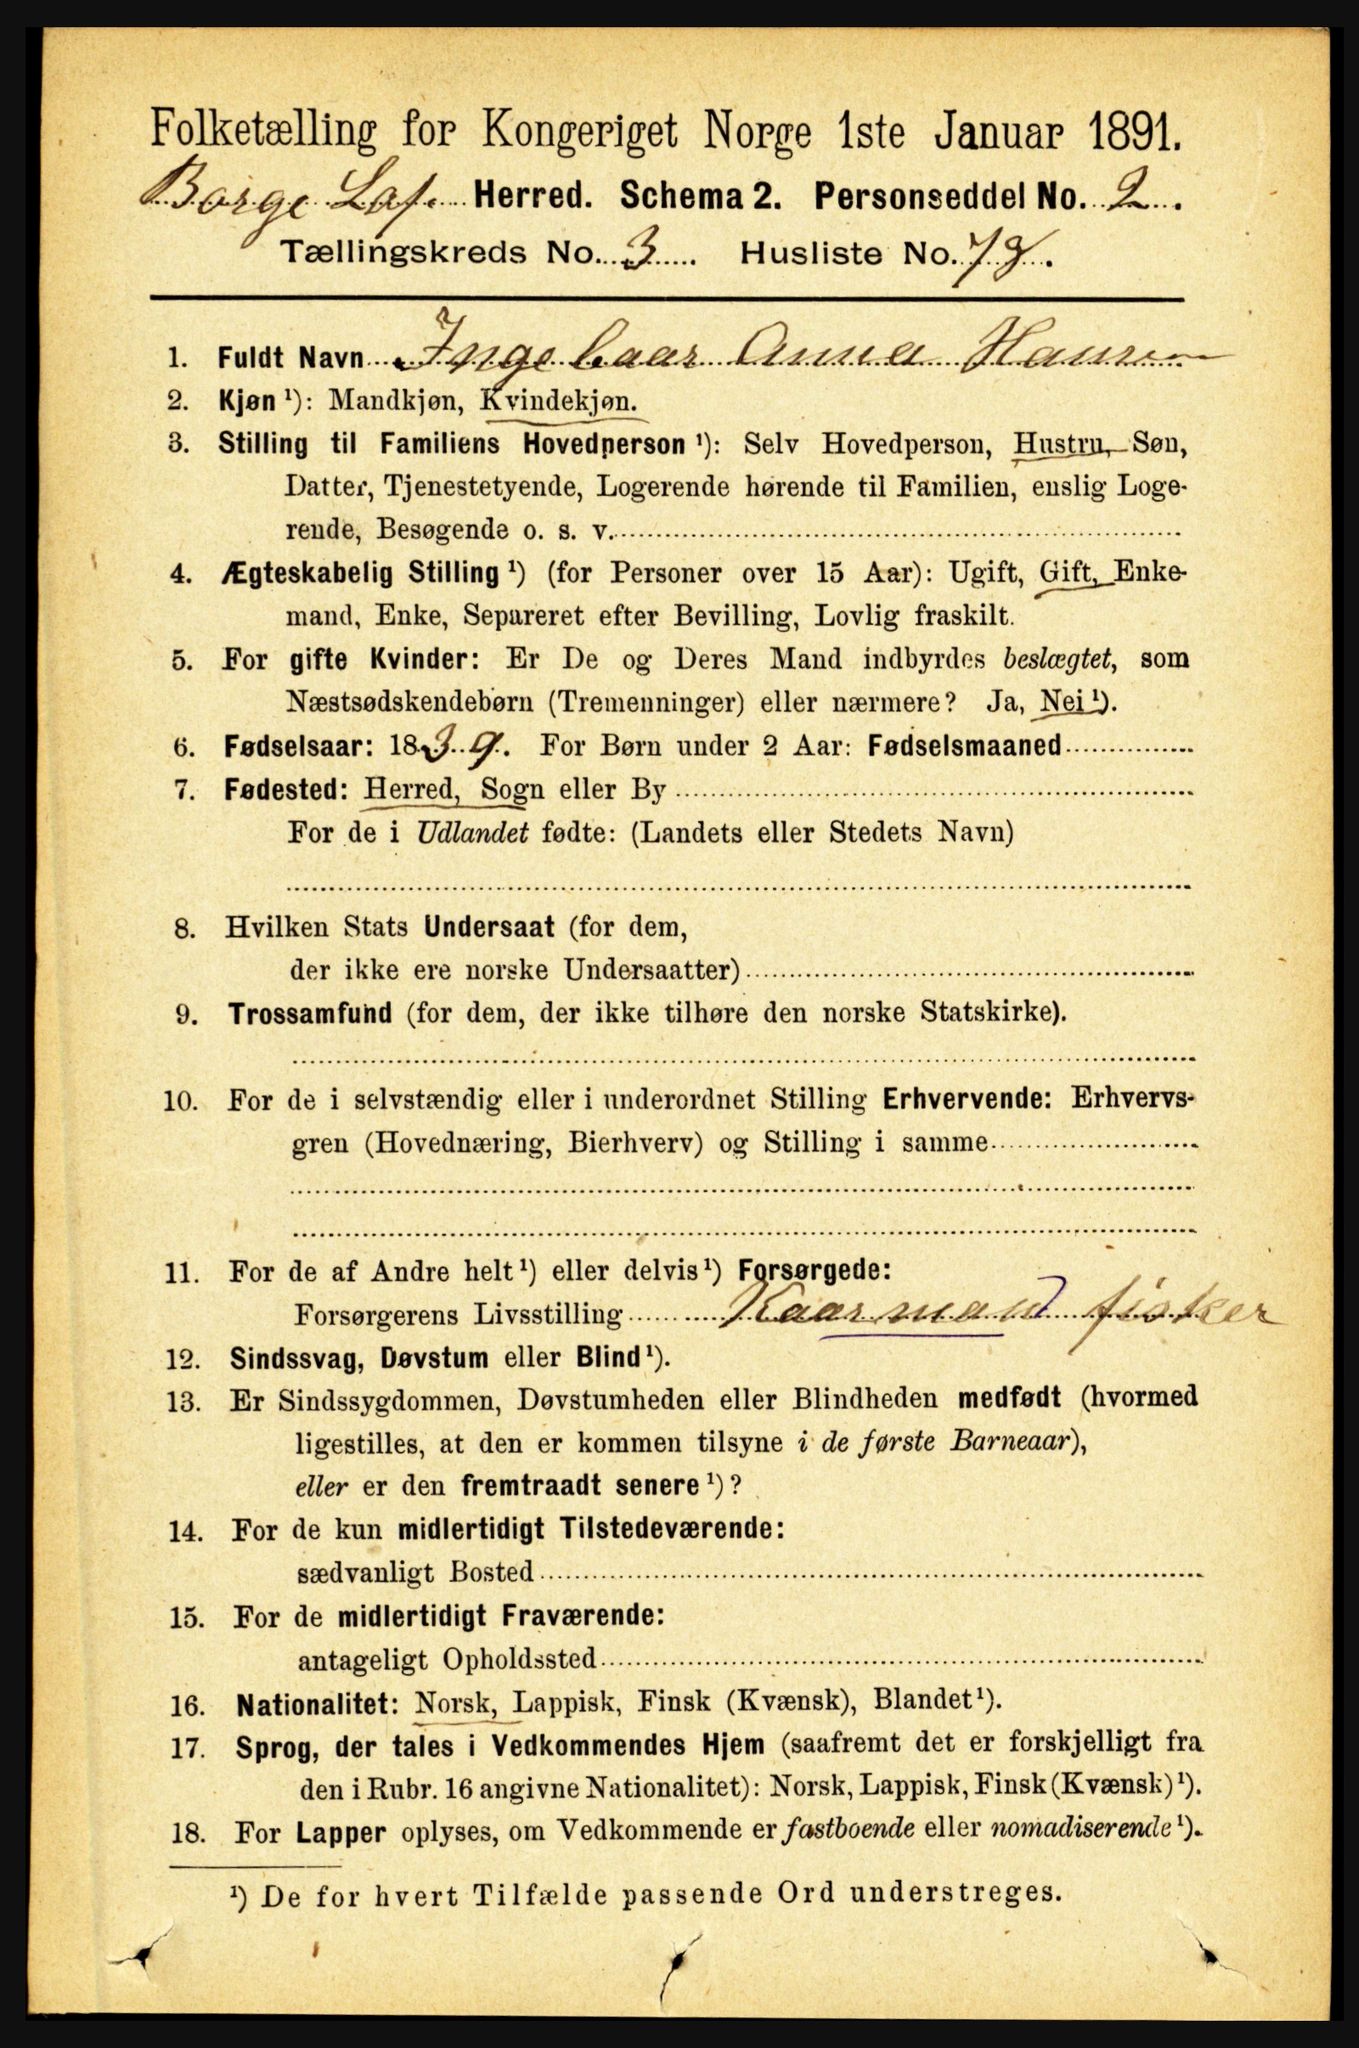 Folketælling for Kongeriget Norge 1ste Januar 1891.
Borge Lof. Herred. Schema 2. Personseddel No. 2.
Tællingskreds No. 3 Husliste No. 78.
1. Fuldt Navn Ingebaar Anna Hansen
2. Kjøn ¹): Mandkjøn, Kvindekjøn.
3. Stilling til Familiens Hovedperson ¹): Selv Hovedperson, Hustru, Søn,
Datter, Tjenestetyende, Logerende hørende til Familien, enslig Loge-
rende, Besøgende o. s. v.
4. Ægteskabelig Stilling ¹) (for Personer over 15 Aar): Ugift, Gift, Enke-
mand, Enke, Separeret efter Bevilling, Lovlig fraskilt.
5. For gifte Kvinder: Er De og Deres Mand indbyrdes beslægtet, som
Næstsødskendebørn (Tremenninger) eller nærmere? Ja, Nei ¹).
6. Fødselsaar: 1839. For Børn under 2 Aar: Fødselsmaaned
7. Fødested: Herred, Sogn eller By
For de i Udlandet fødte: (Landets eller Stedets Navn)
8. Hvilken Stats Undersaat (for dem,
der ikke ere norske Undersaatter)
9. Trossamfund (for dem, der ikke tilhøre den norske Statskirke).
10. For de i selvstændig eller i underordnet Stilling Erhvervende: Erhvervs-
gren (Hovednæring, Bierhverv) og Stilling i samme
11. For de af Andre helt ¹) eller delvis ¹) Forsørgede:
Forsørgerens Livsstilling Kaarmand fisker
12. Sindssvag, Døvstum eller Blind ¹).
13. Er Sindssygdommen, Døvstumheden eller Blindheden medfødt (hvormed
ligestilles, at den er kommen tilsyne i de første Barneaar),
eller er den fremtraadt senere ¹)?
14. For de kun midlertidigt Tilstedeværende:
sædvanligt Bosted
15. For de midlertidigt Fraværende:
antageligt Opholdssted
16. Nationalitet: Norsk, Lappisk, Finsk (Kvænsk), Blandet ¹).
17. Sprog, der tales i Vedkommendes Hjem (saafremt det er forskjelligt fra
den i Rubr. 16 angivne Nationalitet): Norsk, Lappisk, Finsk (Kvænsk) ¹).
18. For Lapper oplyses, om Vedkommende er fastboende eller nomadiserende ¹).
¹) De for hvert Tilfælde passende Ord understreges.